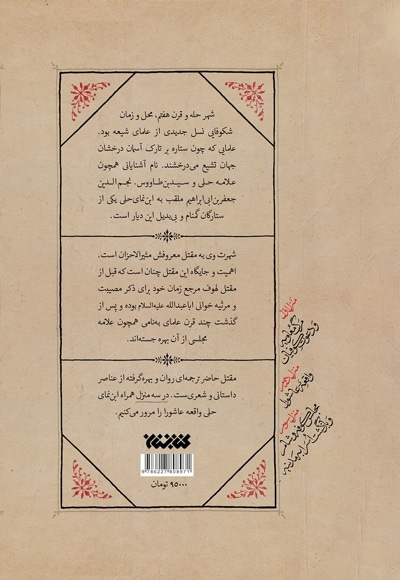 شهر حله و قرن هفتم، محل و زمان
شکوفایی نسل جدیدی از علمای شیعه بود.
علمایی که چون ستاره بر تارک آسمان درخشان
جهان تشیع می‌درخشند. نام آشنایانی همچون
علامه حلی و سیدبن‌طاووس. نجم‌الدین
جعفربن‌ابی‌ابراهیم ملقب به ابن‌نمای‌حلی یکی از
ستارگان گمنام و بی‌بدیل این دیار است.
شهرت وی به مقتل معروفش مثیرالاحزان است.
اهمیت و جایگاه این مقتل چنان است که قبل از
مقتل لهوف مرجع زمان خود برای ذکر مصیبت
و مرثیه خوانی اباعبدالله علیه‌السلام بوده و پس از
گذشت چند قرن علمای به‌نامی همچون علامه
مجلسی از آن بهره جسته‌اند.
مقتل حاضر ترجمه‌ای روان و بهره‌گرفته از عناصر
داستانی و شعری‌ست. در سه منزل همراه ابن‌نمای
حلی واقعه عاشورا را مرور می‌کنیم.
کتابستان
9786227808971
۹۵۰۰۰ تومان
واقعه عاشورا